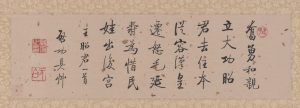 奮勇和親
立大功昭
君去住本
從容漢皇
遷怒毛延
壽為惜民
娃出後宮
王昭君一首
啟功具草